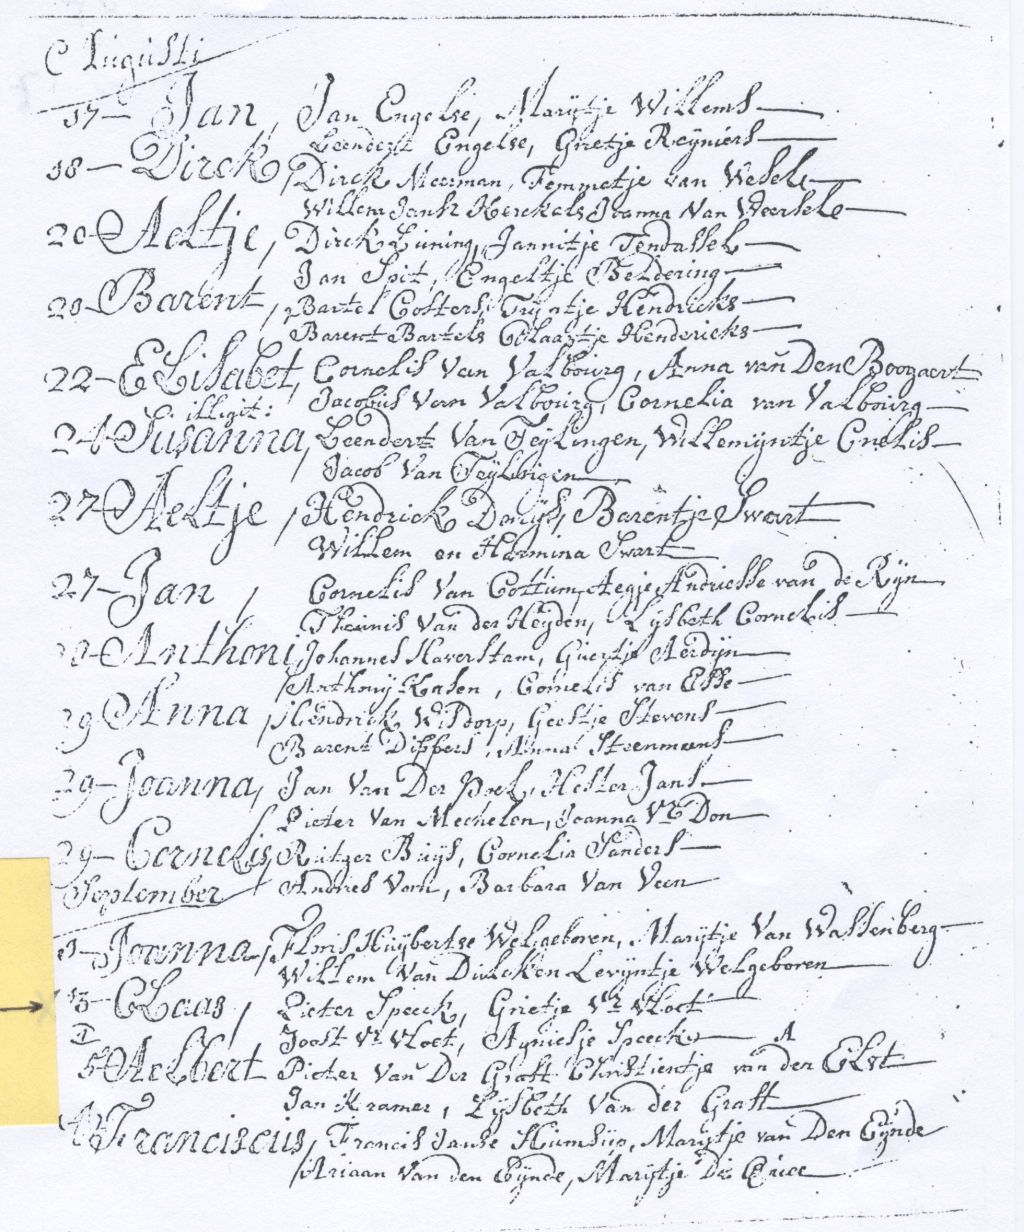 Augusti
17 – Jan, Jan Engelse, Marijtje Willems
Leendert Engelse, Grietje Reyniers
18 – Dirck, Dirck Meerman, Femmetje van Wesele
Willem Jansz Joanna Van Weersele
20 Aeltje, Dirck Lüning, Jannitje Tendassel
Jan Spit, Engeltje Beldering
20 – Barent, Bartel Cotters, Tryntje Hendricks
Barent Bartels Claartje Hendericks
22 – Elisabet, Cornelis Van Valbourg, Anna van Den Boogaert
illigit: Jacobus Vam Valbourg, Cornelia van Valbourg
24 Susanna, Leendert Van Teylingen, Willemijntje Cnelis
Jacob Van Teylingen
27 Aeltje, Hendrick Barentje Swart
Willem en Harmina Swart
27 – Jan, Cornelis Van Cottum, Aegje Andriesse van de Rijn
Theunis van der Heyden, Lysbeth Cornelis
Anthoni, Johannes Haverstam, Geertje Aerdijn
Anthonij Hasen, Cornelis van Esse
29 Anna, Hendrick Wisdorp, Geestje Stevens
Barent Dippers, Anna Steenmeens
29 – Joanna, Jan Van Der Poel, Hester Jans
Pieter Van Mechelen, Joanna Vr Don
29 – Cornelis, Rutger Buys, Cornelia Sanders
Andries Vorn, Barbara Van Veen
September
Joanna, Floris Huybertse Welgeboren, Marijtje Van Wassenberg
Willem Van Levyntje Welgeboren
Claas, Pieter Speeck, Grietje Vr Vloet
Joost Vr Vloet, Agniesje Speeck A
Aelbert Pieter Van Der Graft Christientje van der Elst
Jan Kramer, Lysbeth Van der Graft
Franciscus, Francis Janse Marijtje van Den Eynde
Ariaan Van den Eynde, Marijtje De